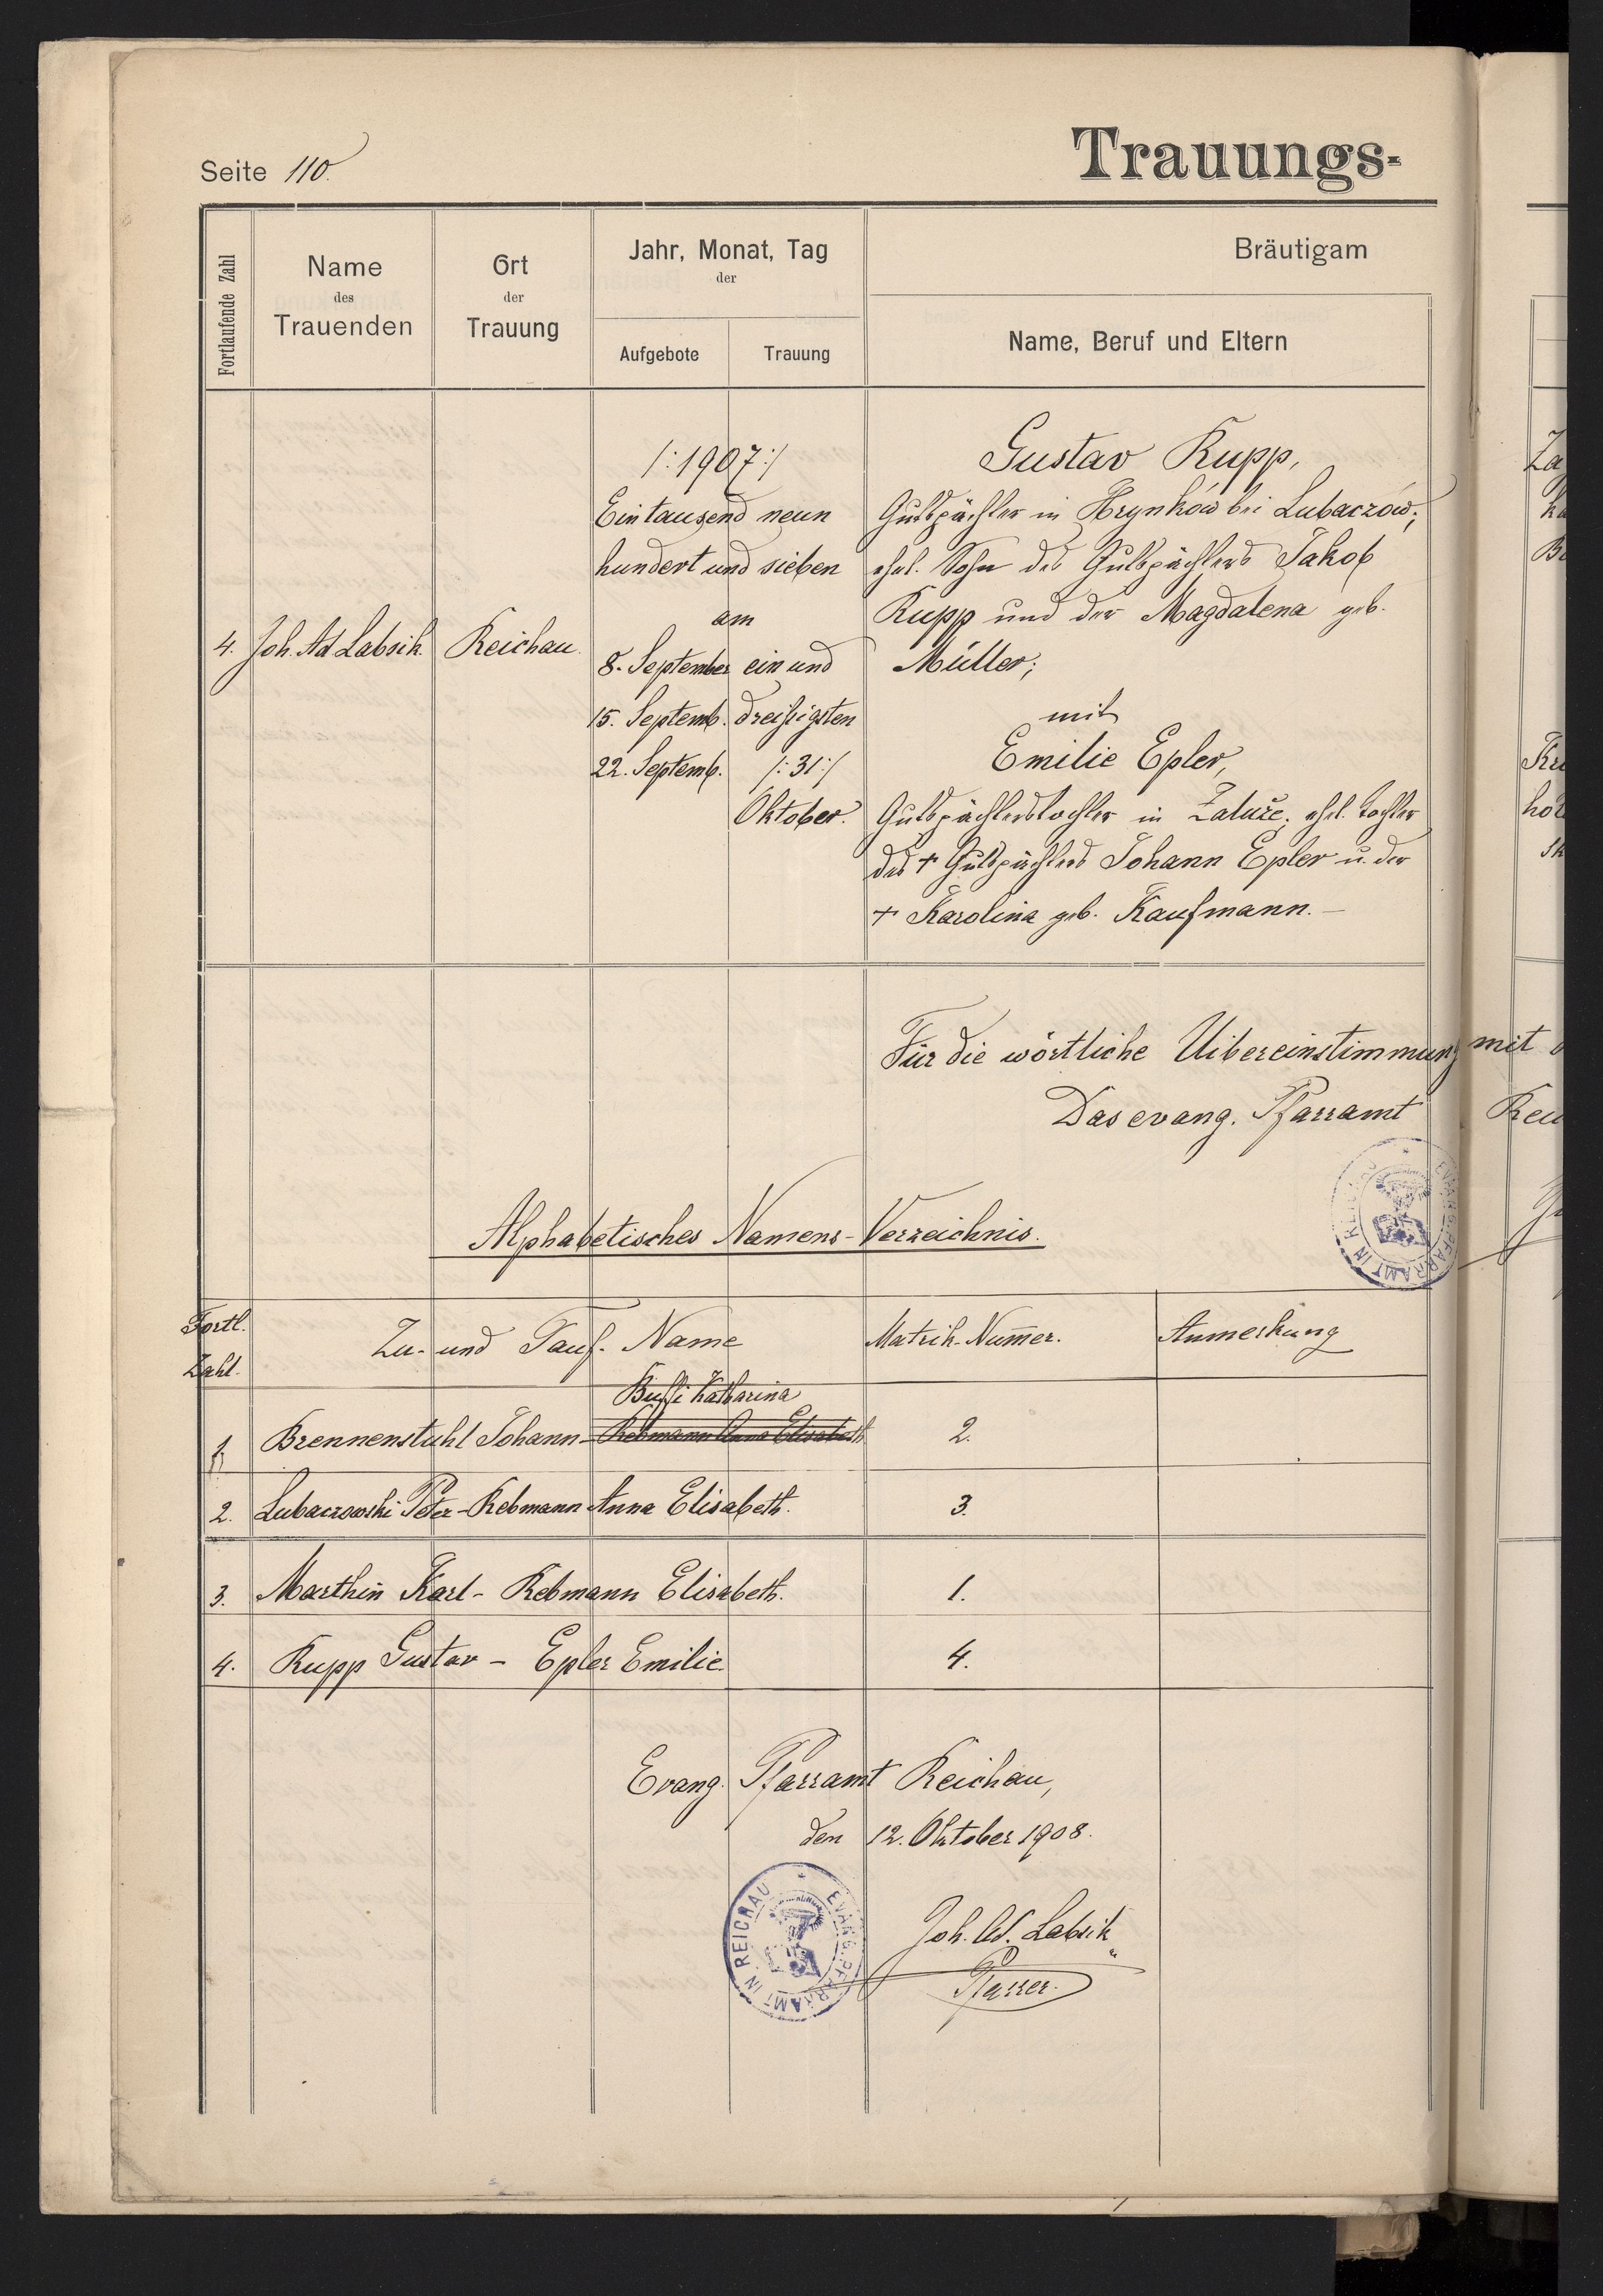 Seite 110.
Trauungs-
Fortlaufende Zahl
Name
des
Trauenden
Ort
der
Trauung
Jahr, Monat, Tag
der
Aufgebote
Trauung
Bräutigam
Name, Beruf und Eltern
4.
Joh. Ad Labsik.
Reichau.
/: 1907 :/
Ein tausend neun
hundert und sieben
am
8. September
15. Septemb.
22. Septemb.
ein und
dreißigsten
/: 31 :/
Oktober.
Gustav Rupp,
Gutspächter in Hrynków bei Lubaczów;
ehel. Sohn des Gutspächters Jakob
Rupp und der Magdalena geb.
Müller;
mit
Emilie Epler,
Gutspächterstochter in Załuże; ehel. Tochter
des + Gutspächters Johann Epler u. der
+ Karolina geb. Kaufmann. –
Für die wörtliche Uibereinstimmung mit
Das evang. Pfarramt
EVANG. PFARRAMT IN REICHAU
Alphabetisches Namens-Verzeichnis.
Fortl.
Zahl.
Zu- und Tauf- Name
Matrik-Num̄er.
Anmerkung
Buffi Katharina
1. Brennenstuhl Johann - Rebmann Anna Elisabeth 2.
2. Lubaczowski Peter - Rebmann Anna Elisabeth. 3.
3. Marthin Karl - Rebmann Elisabeth. 1.
4. Rupp Gustav - Epler Emilie. 4.
Evang. Pfarramt Reichau,
den 12. Oktober 1908.
EVANG. PFARRAMT IN REICHAU
Joh. Ad. Labsik
Pfarrer.